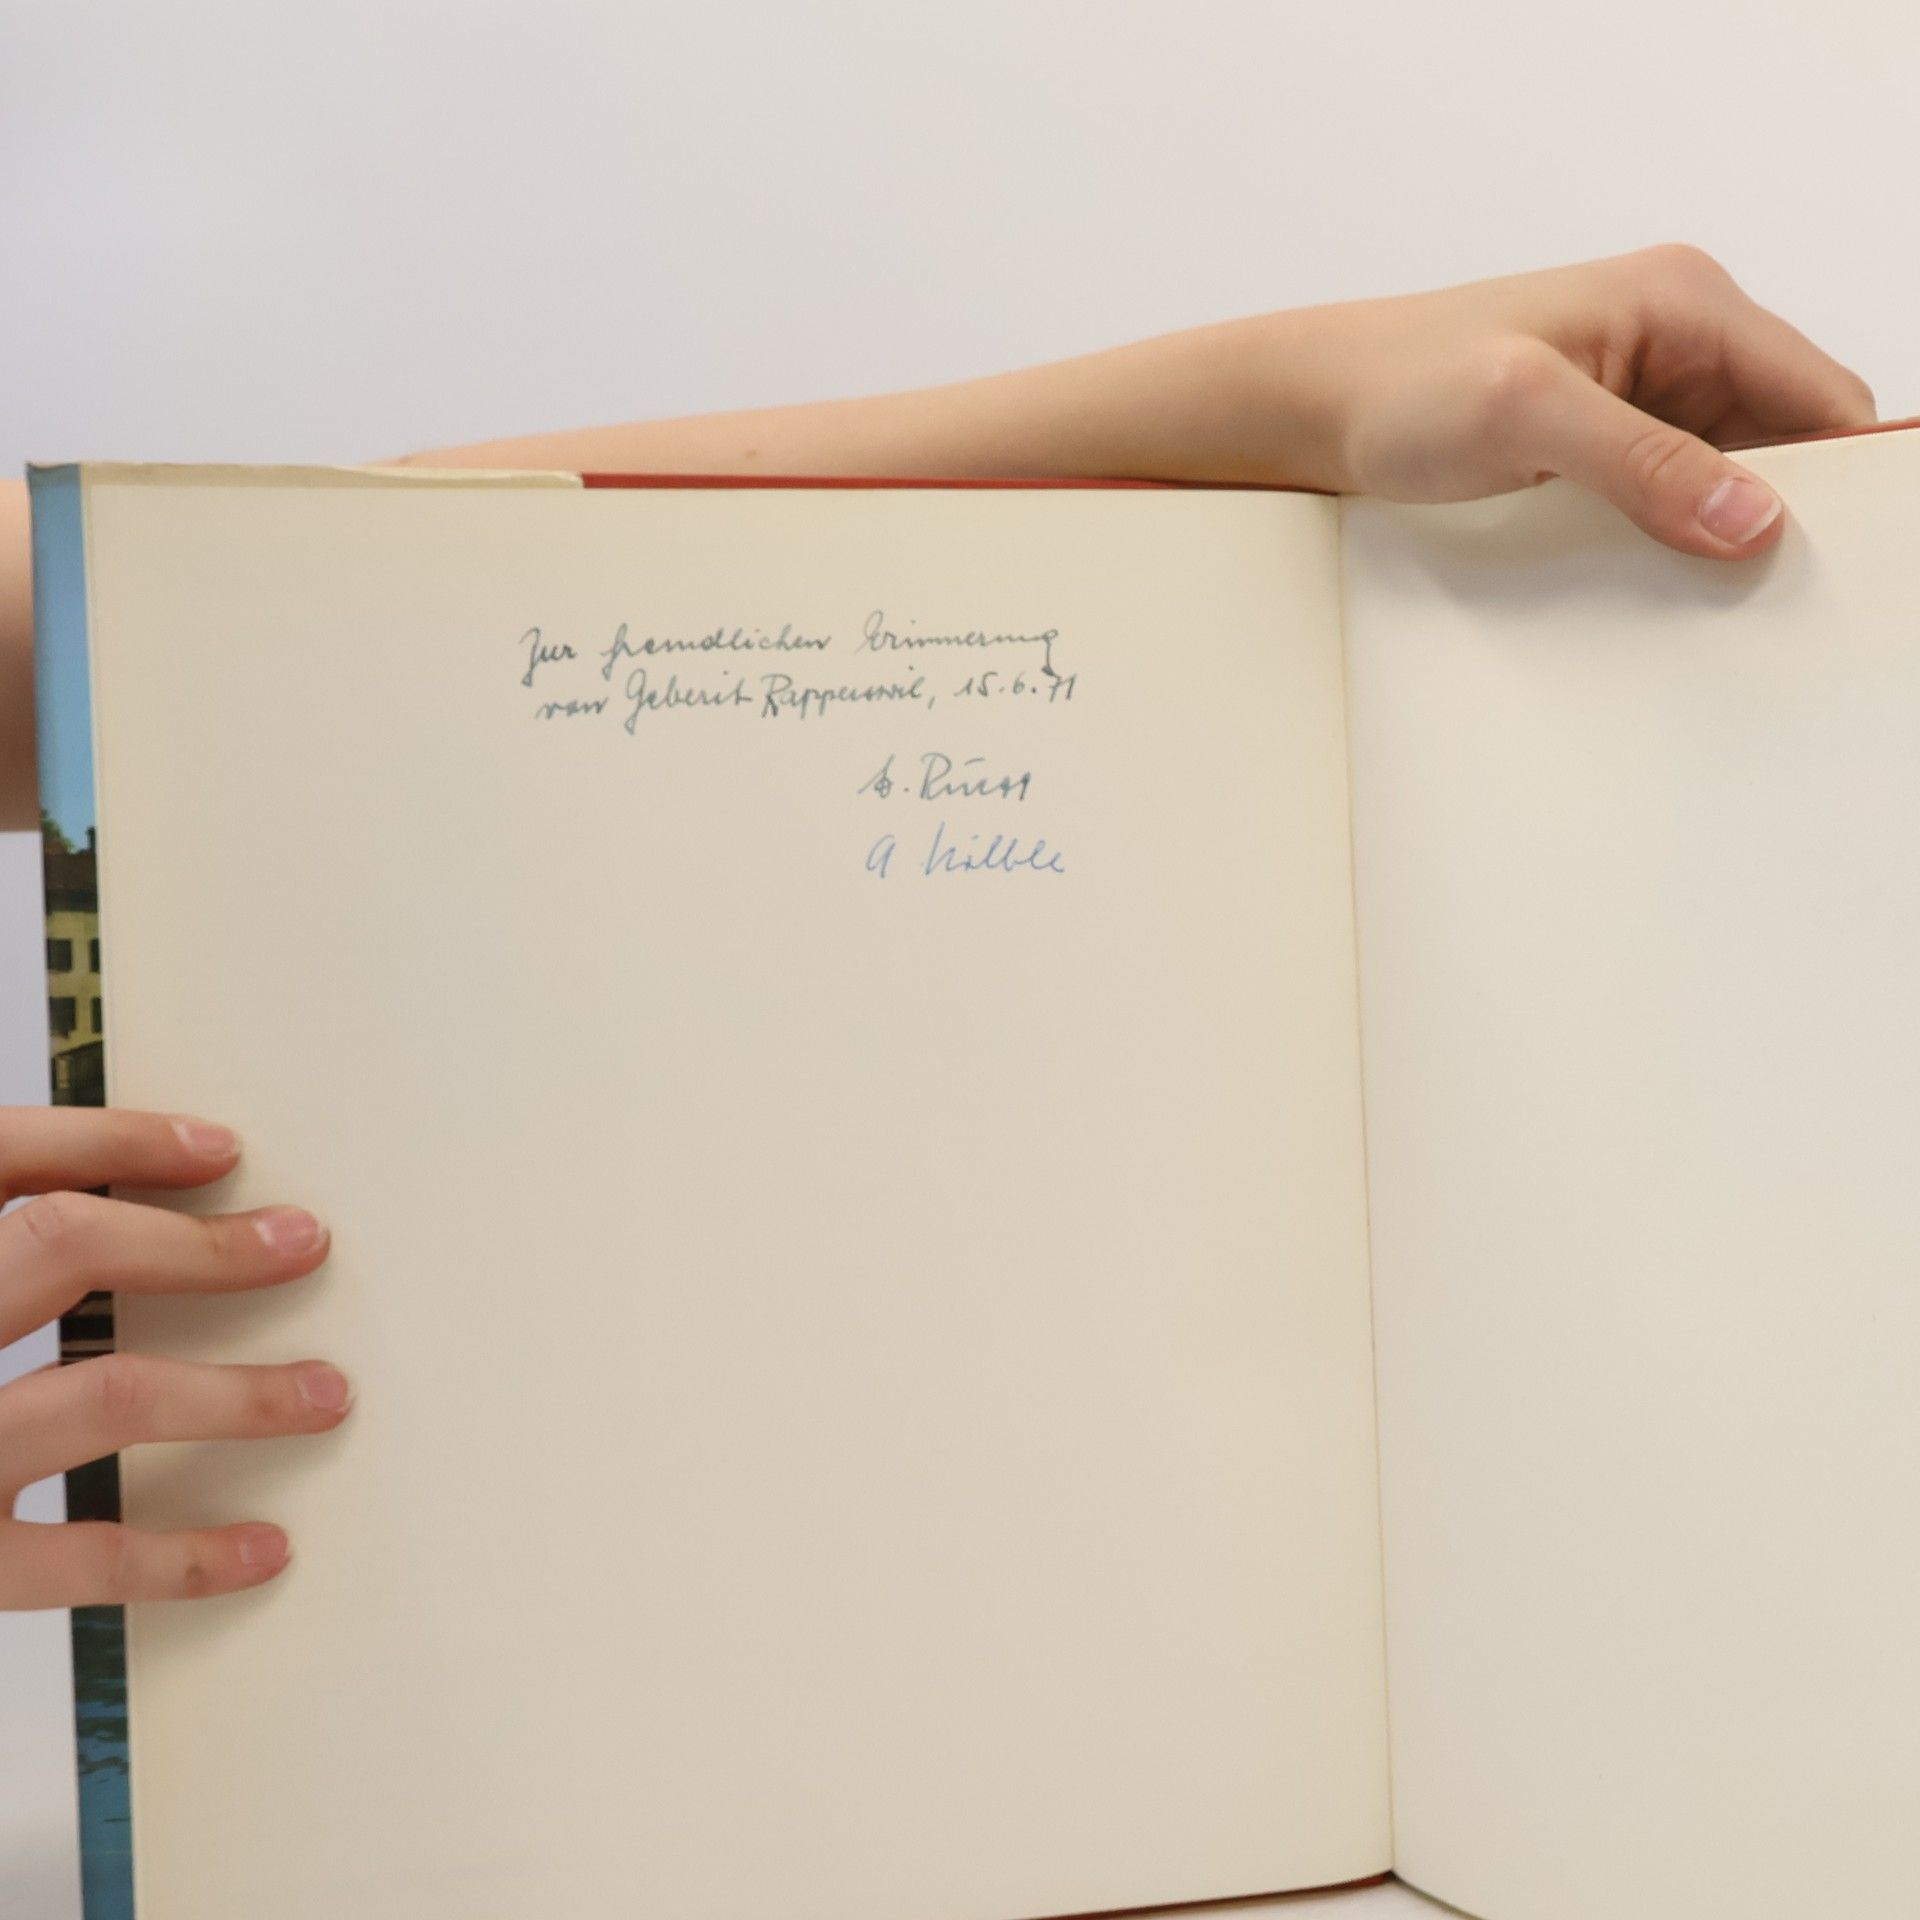 Zur freundlichen Erinnerung
von Geberit Rapperswil, 15.6.71
Rüegg
A Kälble